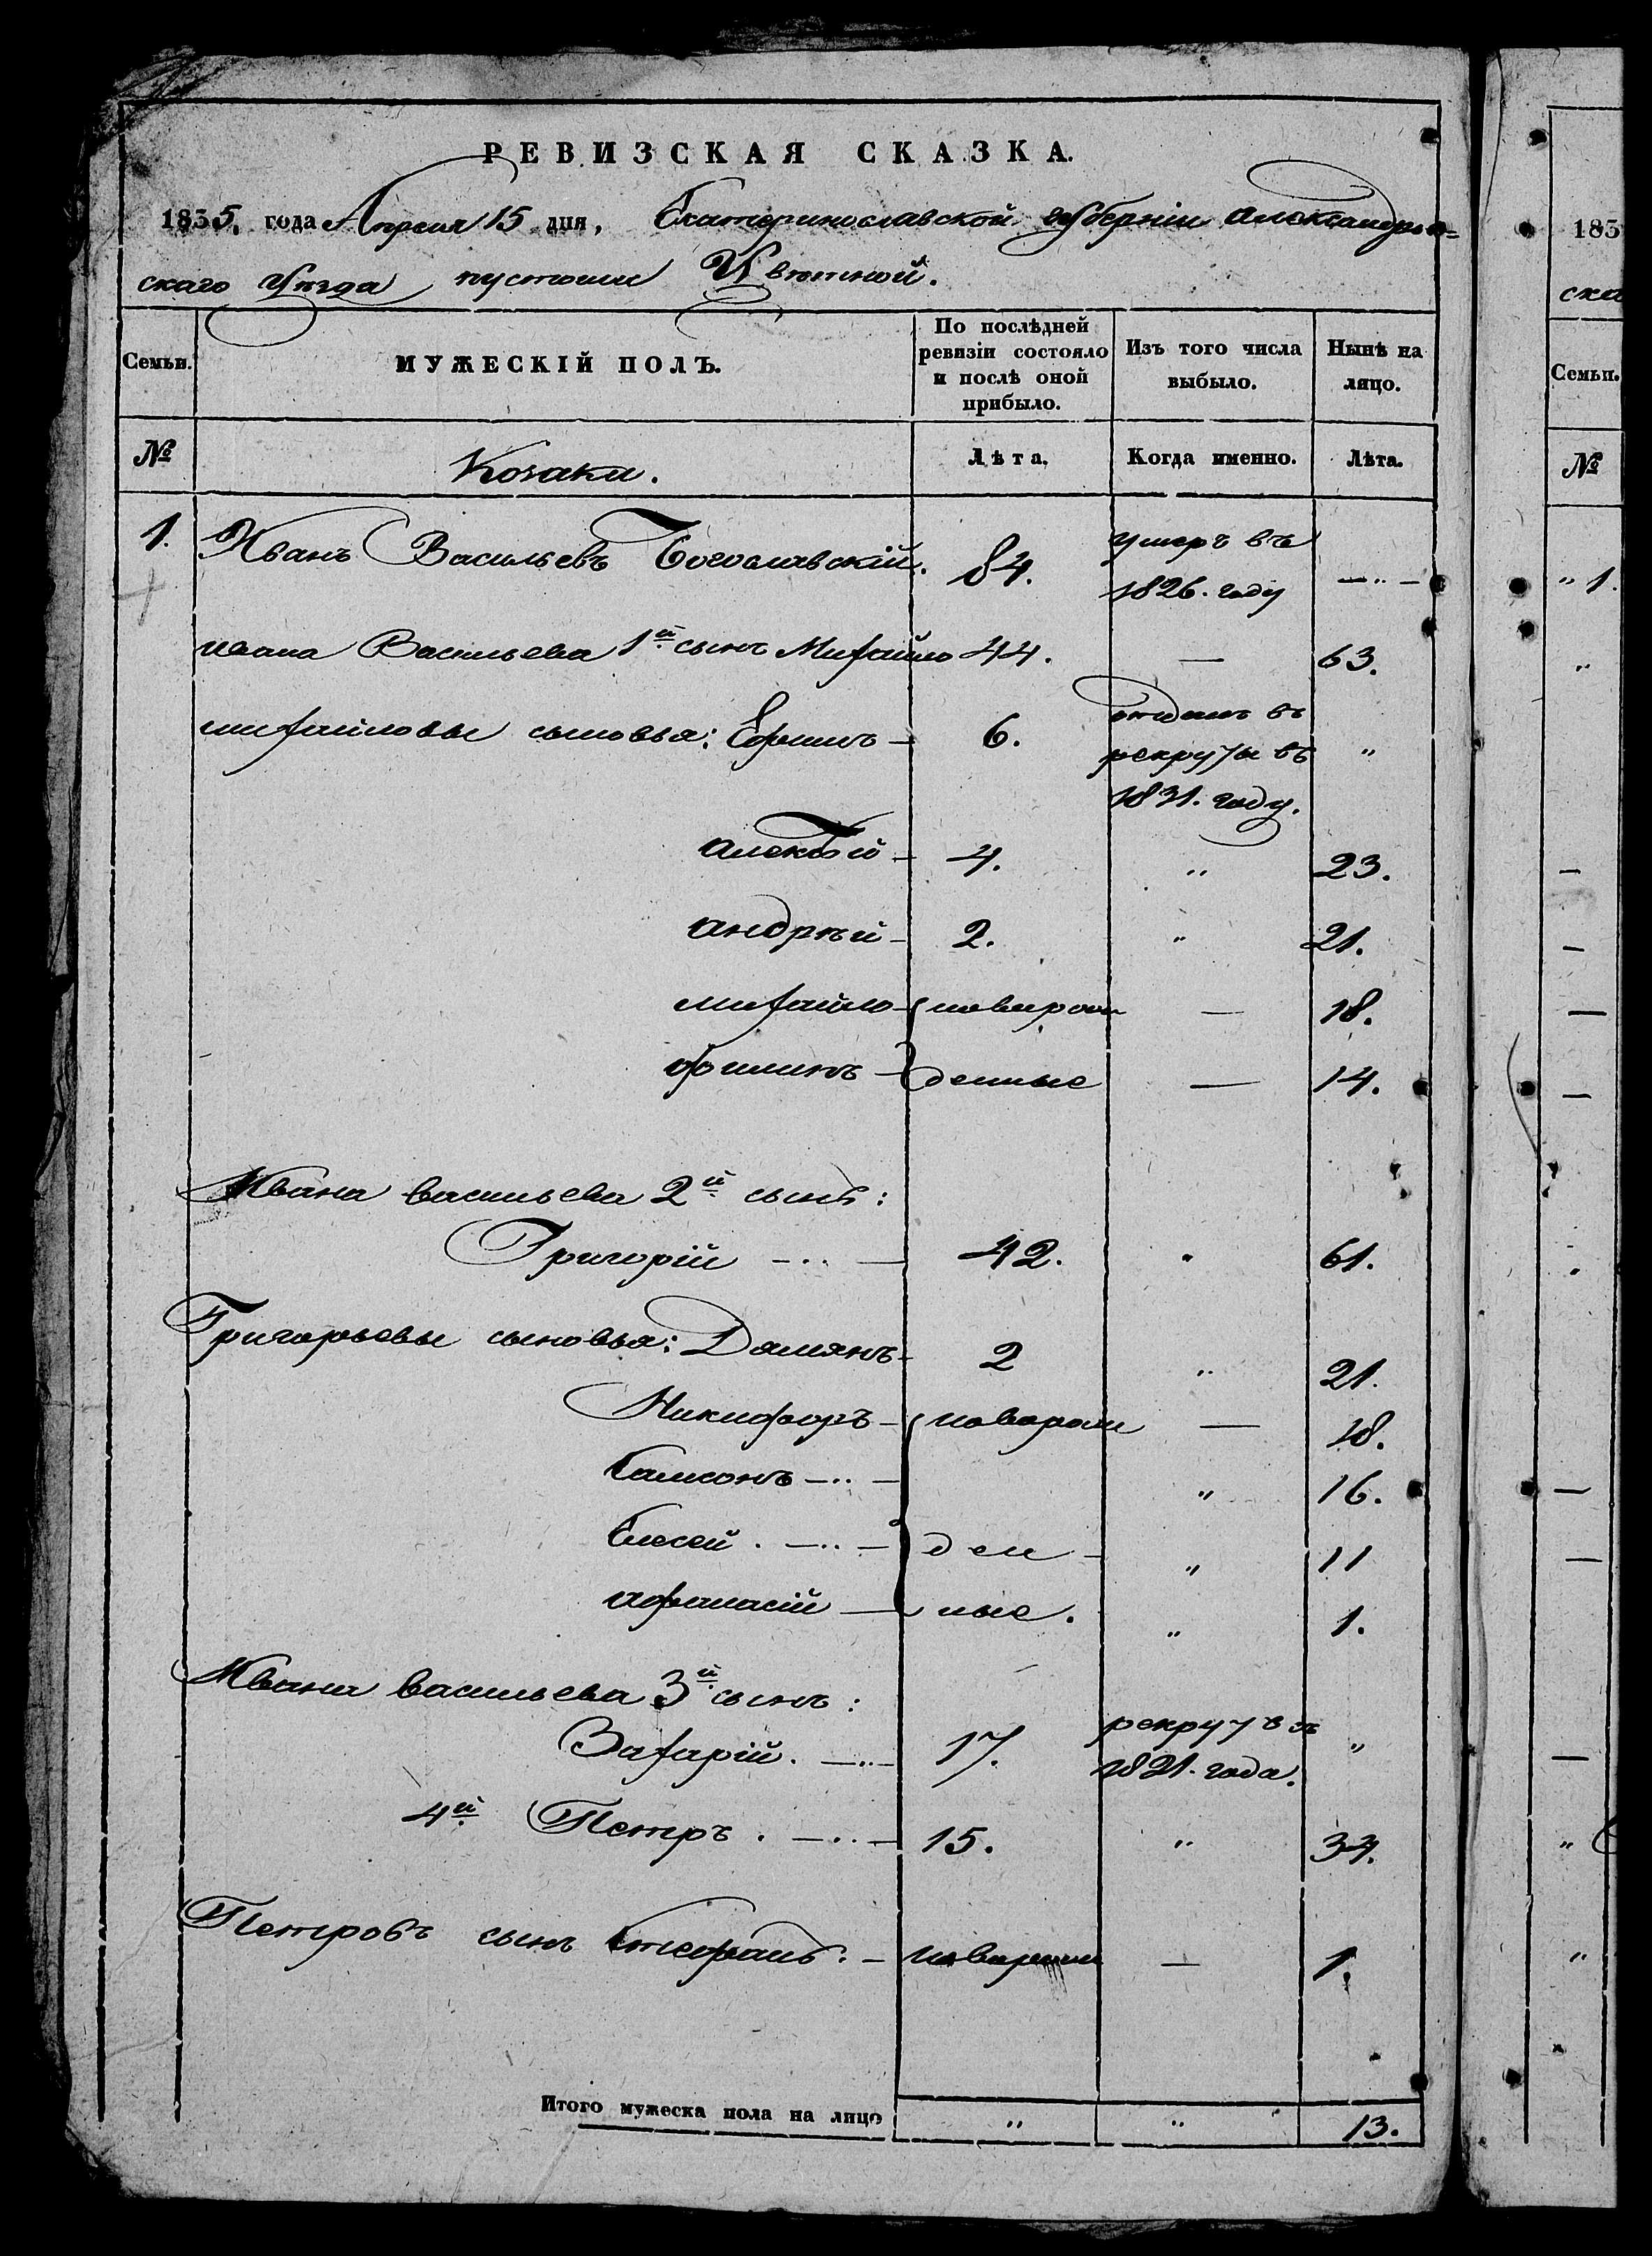 РЕВИЗСКАЯ СКАЗКА.
1835, года Апреля 15 дня, Екатеринославской губерніи Александров=
скаго уѣзда пустоши Цвѣтной.
Семьи. МУЖЕСКІЙ ПОЛЪ. По послѣдней ревизіи состояло и послѣ оной прибыло. Изъ того числа выбыло. Нынѣ на лицо.
№ Козаки. Лѣта. Когда именно. Лѣта.
1. Иванъ Васильевъ Богославскій. 84. умеръ въ 1826. году —..—
ивана Васильева 1й сынъ Михайло 44. — 63.
михайловы сыновья: Ефимъ — 6. отданъ въ рекруты въ 1831. году. "
алексѣй — 4. " 23.
андрѣй — 2. " 21.
михайло — новорож — 18.
филипъ — денные — 14.
Ивана васильева 2й сынъ:
Григорій —..— 42. " 61.
Григорьевы сыновья: Дамянъ — 2 " 21.
Никифоръ — новорож — 18.
Самсонъ —..— " 16.
Елесей. —..— ден — " 11
афанасій — ные. " 1.
Ивана васильева 3й сынъ:
Захарій. —..— 17. рекрутъ въ 1821. года. "
4й Петръ. —..— 15. " 34.
Петровъ сынъ Стефанъ. — новорож — 1.
Итого мужеска пола на лицо " " 13.
183
ска
Семьи.
№
" 1.